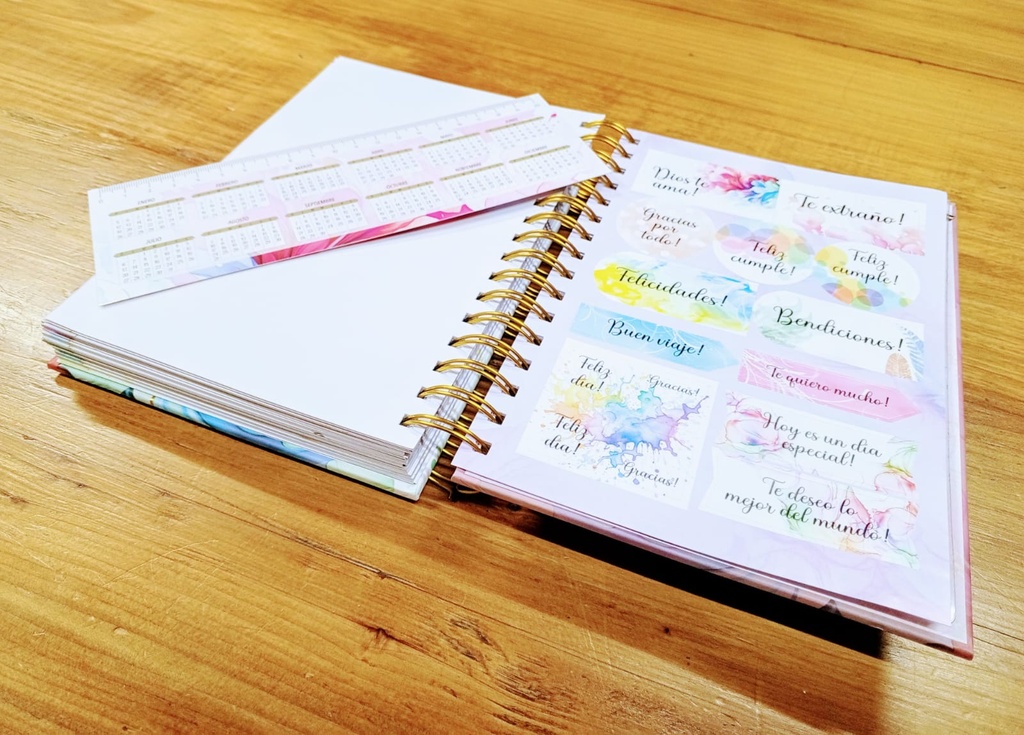 ENERO
FEBRERO
MARZO
ABRIL
MAYO
JUNIO
JULIO
AGOSTO
SEPTIEMBRE
OCTUBRE
NOVIEMBRE
DICIEMBRE
Dios te
ama!
Te extraño!
Gracias
por
todo!
Feliz
cumple!
Feliz
cumple!
Felicidades!
Bendiciones!
Buen viaje!
Te quiero mucho!
Feliz
día!
Gracias!
Feliz
día!
Gracias!
Hoy es un día
especial!
Te deseo lo
mejor del mundo!